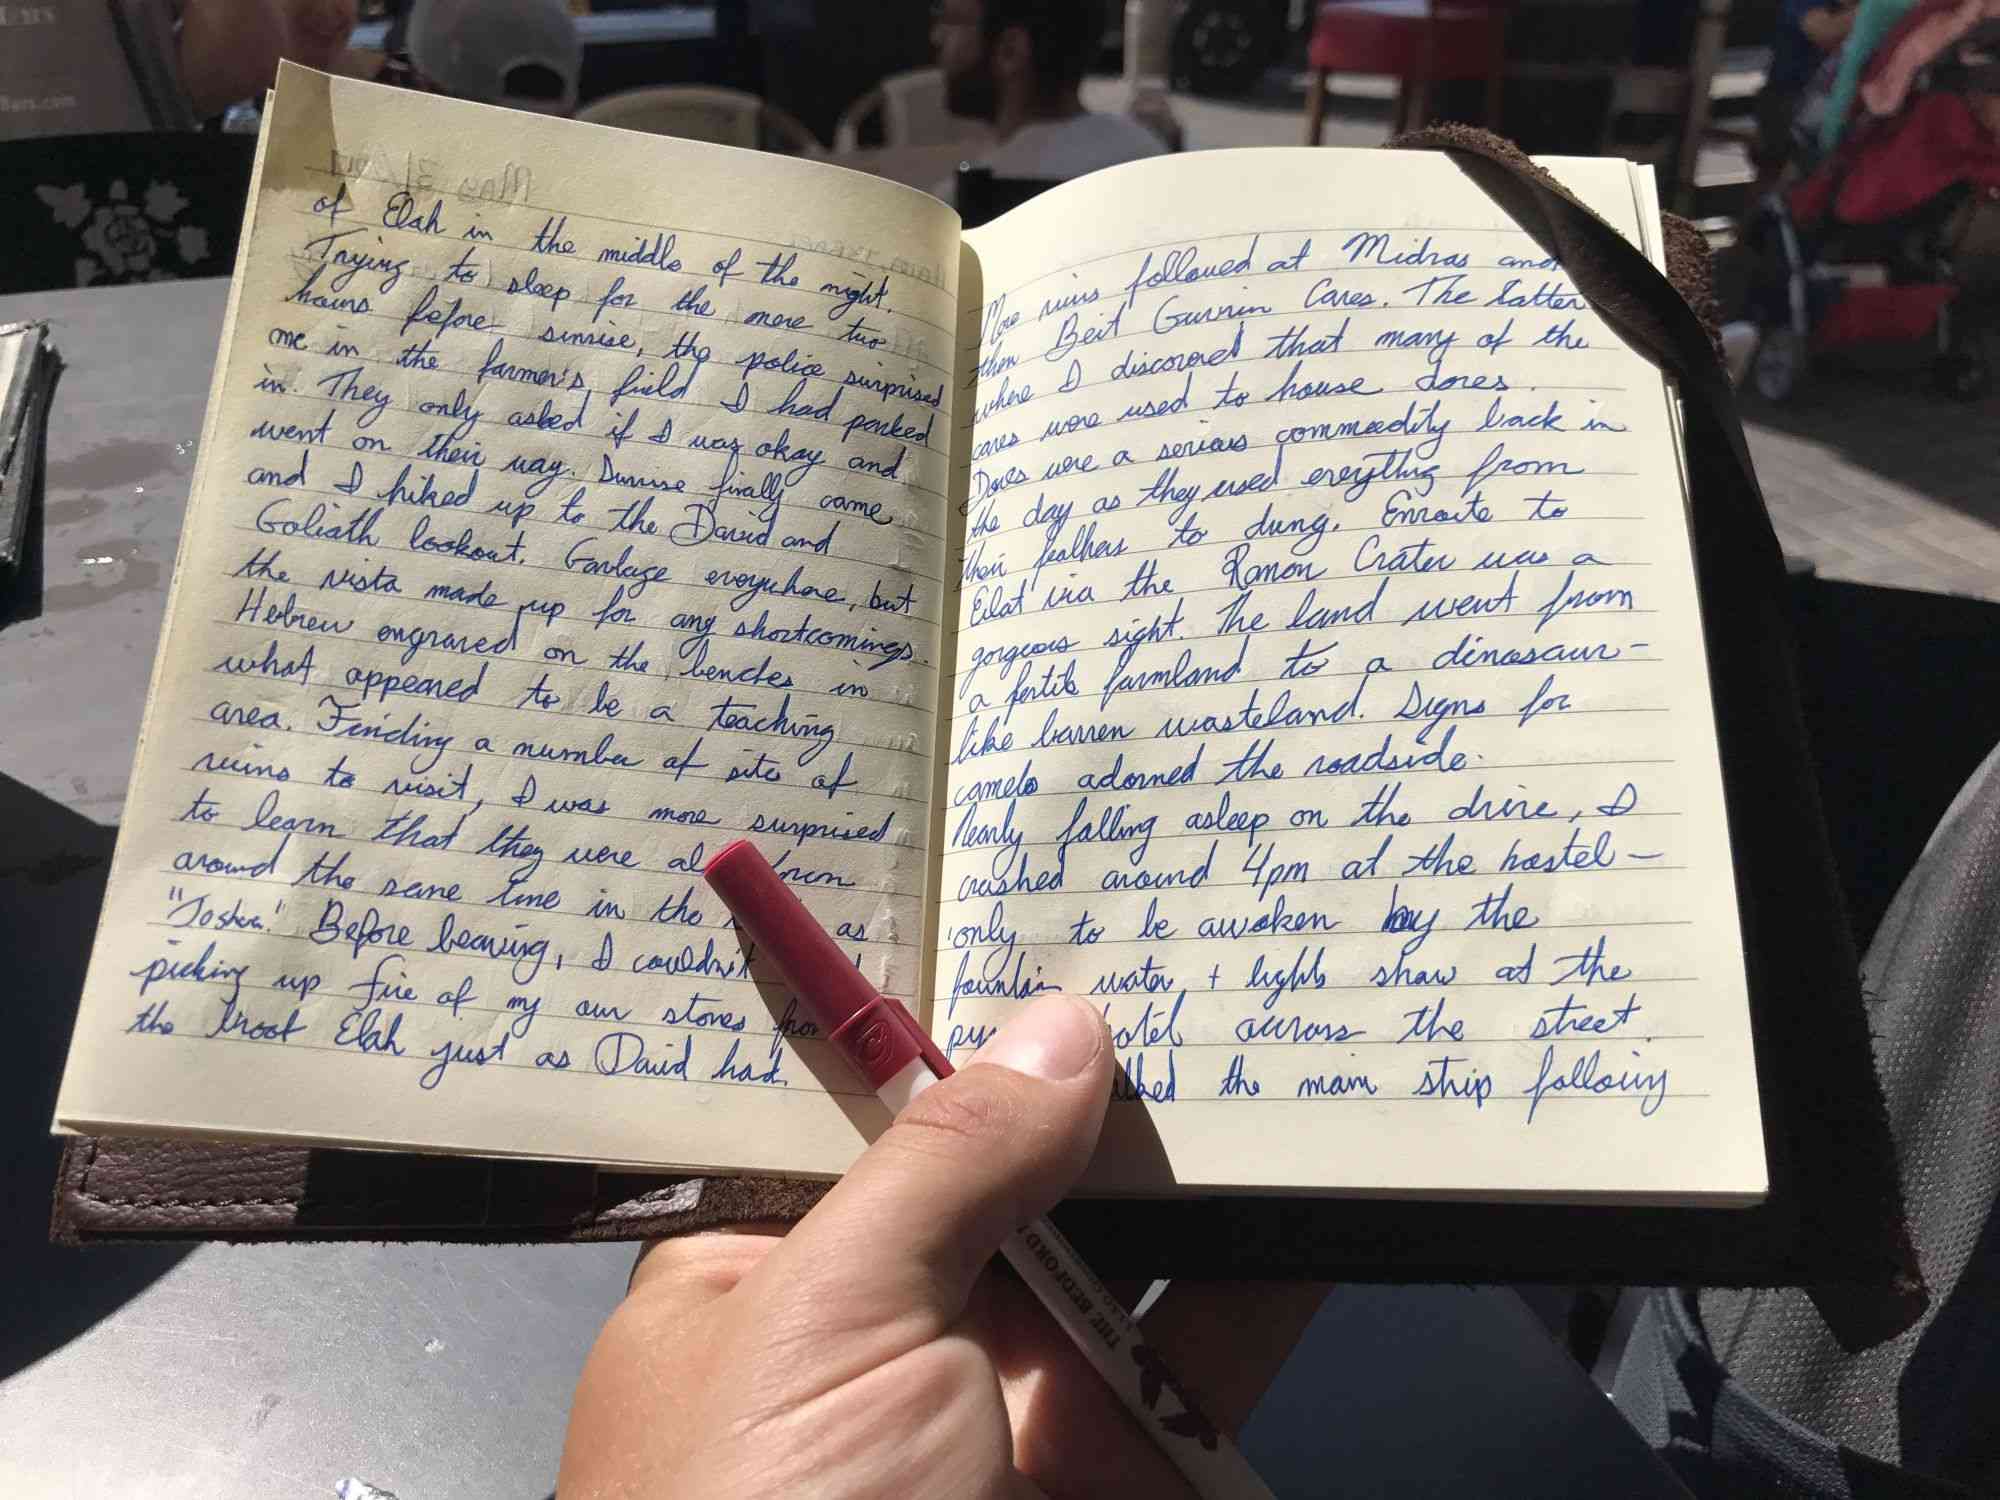 of Elah in the middle of the night.
Trying to sleep for the mere two
hours before sunrise, the police surprised
me in the farmer's field I had parked
in. They only asked if I was okay and
went on their way. Sunrise finally came
and I hiked up to the David and
Goliath lookout. Garbage everywhere, but
the vista made up for any shortcomings.
Hebrew engraved on the benches in
what appeared to be a teaching
area. Finding a number of sites of
ruins to visit, I was more surprised
to learn that they were al
around the same time in the as
"Joshua." Before leaving, I couldn't
picking up five of my our stones from
the Elah just as David had.
More ruins followed at Midras and
then Beit Guvrin Caves. The latter
where I discovered that many of the
caves were used to house doves.
Doves were a serious commodity back in
the day as they used everything from
their feathers to dung. Enroute to
Eilat via the Ramon Crater was a
gorgeous sight. The land went from
a fertile farmland to a dinosaur-
like barren wasteland. Signs for
camels adorned the roadside.
Nearly falling asleep on the drive, I
crashed around 4pm at the hostel –
only to be awoken by the
fountain water + lights show at the
py hotel across the street.
alked the main strip following
THE BEDFORD
Bars.com